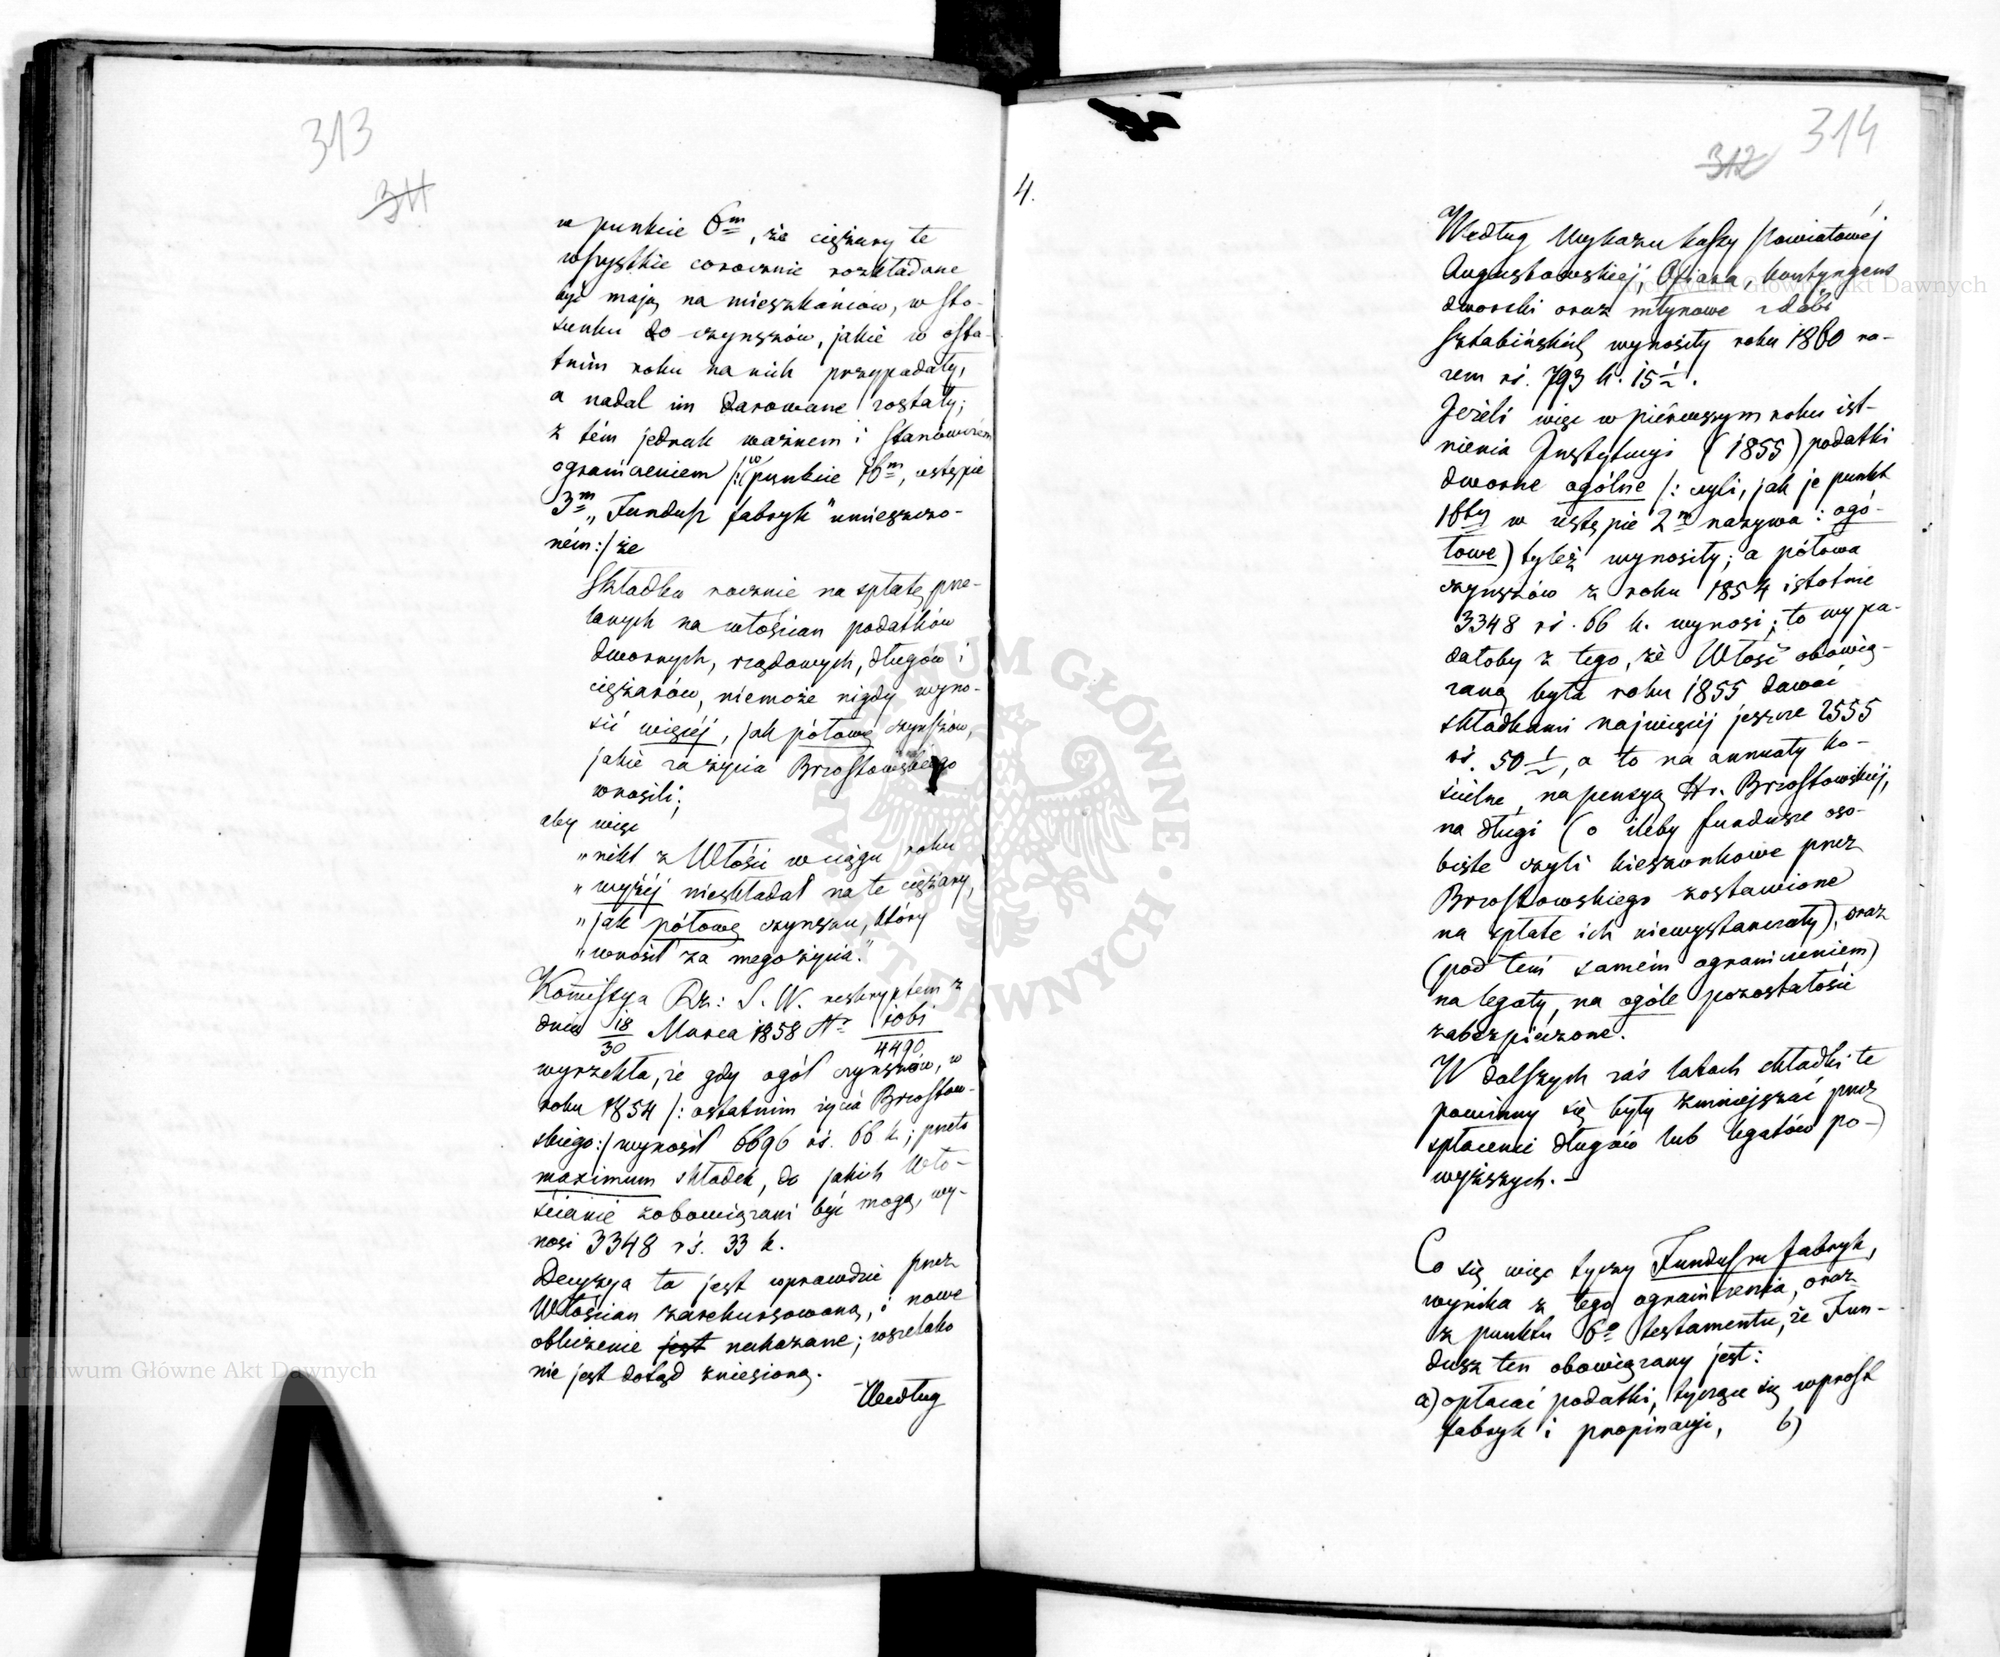 313
311
w punkcie 6m, że ciężary te
wszystkie corocznie rozkładane
być mają na mieszkańców, w sto-
sunku do czynszów, jakie w osta-
tnim roku na nich przypadały,
a nadal im darowane zostały;
z tém jednak ważnem i stanowczem
ograniczeniem /: w punkcie 16m, ustępie
3m „Fundusz fabryk" umieszczo-
ném :/ że
Składka rocznie na spłatę prze-
lanych na włościan podatków
dwornych, rządowych, długów i
ciężarów, niemoże nigdy wyno-
sić więcéj, jak połowę czynszów,
jakie za życia Brzostowskiego
wnosili;
aby więc
„nikt z Włości w ciągu roku
„wyżéj nieskładał na te ciężary,
„jak połowę czynszu, który
„wnosił za mego życia."
Kommissya Rz: S. W. reskryptem z
dnia 18/30 Marca 1858 Nr 1061/4490
wyrzekła, że gdy ogół czynszów, w
roku 1854 /: ostatnim życia Brzostow-
skiego :/ wynosił 6696 rś. 66 k; przeto
maximum składek, do jakich Wło-
ścianie zobowiązani być mogą, wy-
nosi 3348 rś. 33 k.
Decyzya ta jest wprawdzie przez
Włościan zarekursowaną, i nowe
obliczenie jest nakazane; wszelako
nie jest dotąd zniesioną.
Według
314
312
4.
Według Wykazu kassy Powiatowéj
Augustowskiéj, Ofiara, kontyngens
dworski oraz młynowe z dóbr
Sztabińskich wynosiły roku 1860 ra-
zem rś. 793 k. 15 1/2.
Jeżeli więc w piérwszym roku ist-
nienia Instytucyi (1855) podatki
dworne ogólne /: czyli, jak je punkt
16ty w ustępie 2m nazywa: ogó-
łowe) tyleż wynosiły; a połowa
czynszów z roku 1854 istotnie
3348 rś. 66 k. wynosi; to wypa-
dałoby z tego, że Włość obowią-
zaną była roku 1855 dawać
składkami najwięcéj jeszcze 2555
rś. 50 1/2, a to na annuaty ko-
ścielne, na pensyą Hr. Brzostowskiéj,
na długi (o ileby fundusze oso-
biste czyli kieszonkowe przez
Brzostowskiego zostawione
na spłatę ich niewystarczały), oraz
(pod tém samém ograniczeniem)
na legaty, na ogóle pozostałości
zabezpieczone.
W dalszych zaś latach składki te
powinny się były zmniejszać przez
spłacenie długów lub legatów po-
wyższych. –
Co się więc tyczy Funduszu fabryk,
wynika z tego ograniczenia, oraz
z punktu 6o testamentu, że Fun-
dusz ten obowiązany jest:
a) opłacać podatki, tyczące się wprost
fabryk i propinacyi, b)
Archiwum Główne Akt Dawnych
Archiwum Główne Akt Dawnych
ARCHIWUM GŁÓWNE AKT DAWNYCH